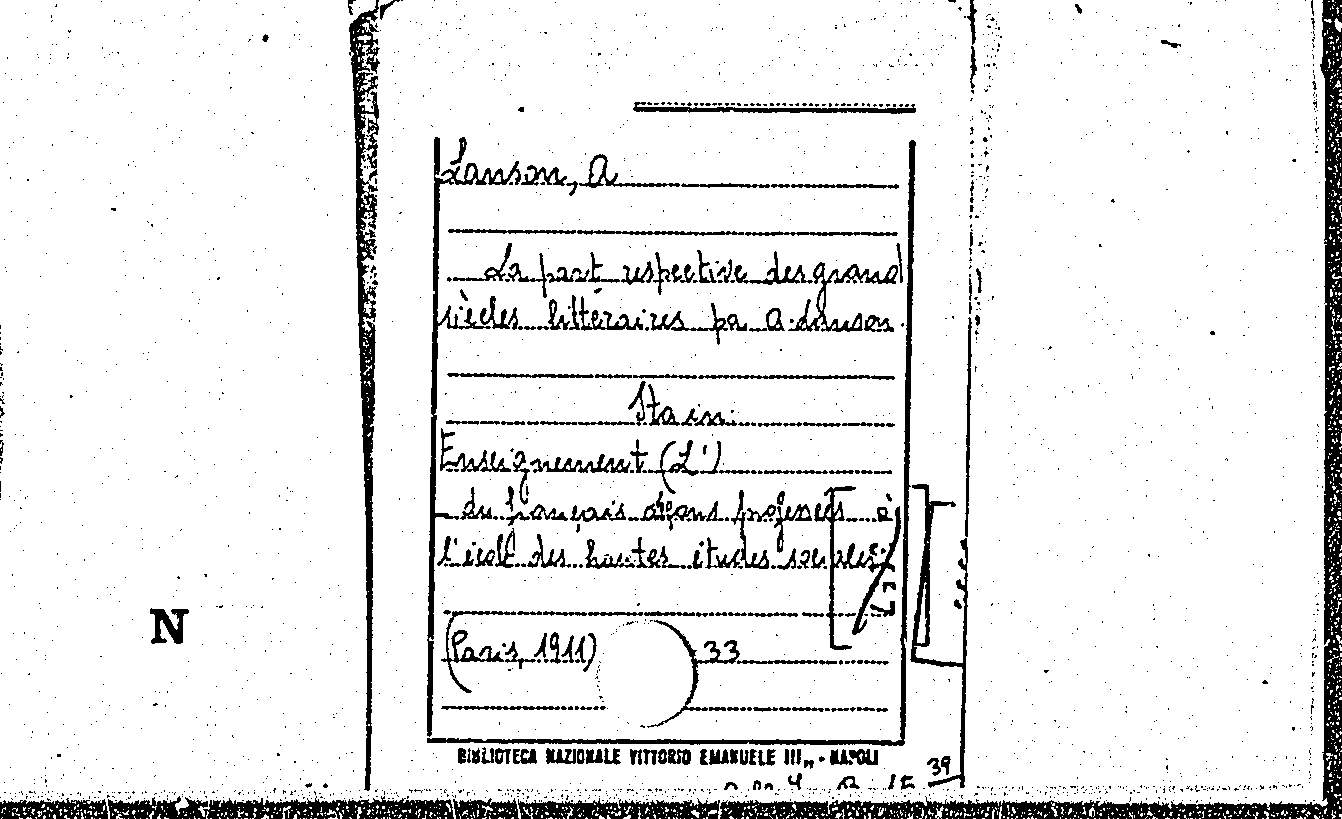 Lanson, A
La part respective des grand
siècles littéraires pa A. Lanson.
Sta in:
Enseignement (L')
du français
l'école des hautes études sociales.
N
(Paris, 1911) 33
BIBLIOTECA NAZIONALE VITTORIO EMANUELE III,, - NAPOLI
39